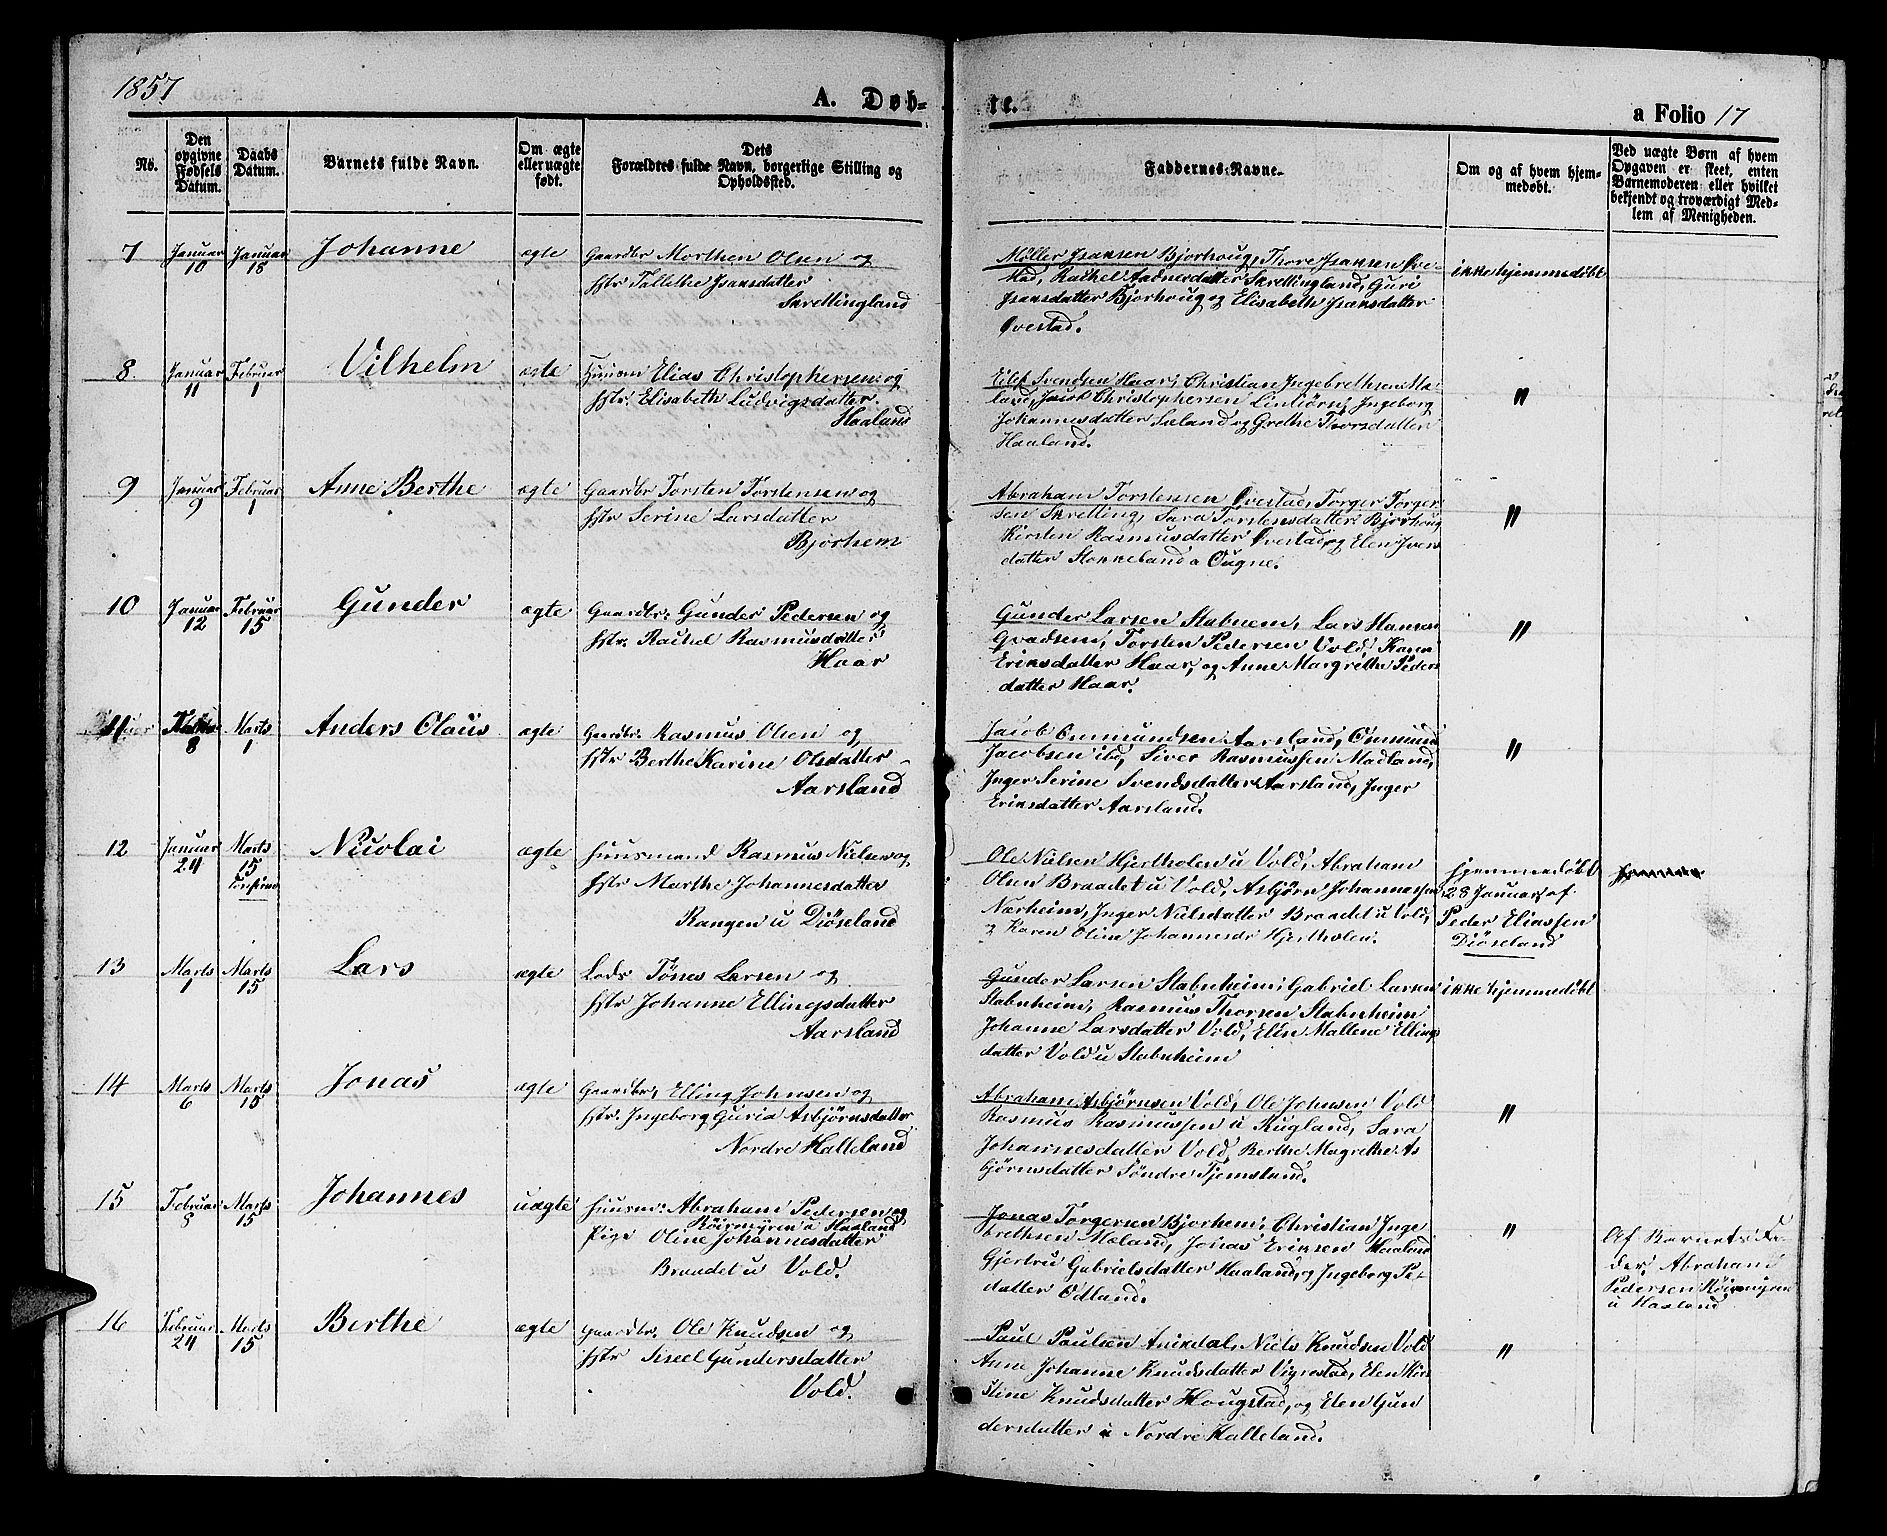 1857
A. Døb-
te.
a Folio 17
No.
Den
opgivne
Fødsels
Datum.
Daabs
Datum.
Barnets fulde Navn.
Om ægte
eller uægte
født.
Dets
Forældres fulde Navn, borgerlige Stilling og
Opholdssted.
Faddernes Navne.
Om og af hvem hjem-
medøbt.
Ved uægte Børn af hvem
Opgaven er skeet, enten
Barnemoderen eller hvilket
bekjendt og troværdigt Med-
lem af Menigheden.
7
Januar
10
Januar
18
Johanne
ægte
Gaardbr Morthen Olsen og
Hstr Tallethe Isaksdatter
Skrettingland
Møller Isaksen Bjorhoug, Thore Isaksen Qve-
stad, Rachel Aadnesdatter Skrettingland, Guri
Isaksdatter Bjorhoug og Elisabeth Isaksdatter
Qvestad.
ikke hjemmedøbt
8
Januar
11
Februar
1
Vilhelm
ægte
Huusm Elias Christophersen og
Hstr. Elisabeth Ludvigsdatter
Haaland
Eilef Svendsen Haar, Christian Ingebrethsen Mæ-
land, Jacob Christophersen Lintjörn, Ingeborg
Johannesdatter Sæland og Grethe Thorsdatter
Haaland.
"
9
Januar
9
Februar
1
Anne Berthe
ægte
Gaardbr Torsten Torstensen og
Hstr Serine Larsdatter
Bjorhem
Abraham Torstensen Qvestad, Torger Torger-
sen Skretting, Sara Torstensdatter Bjorhoug
Kirsten Rasmusdatter Qvestad og Elen Ivers
datter Stokkeland a Ougne.
"
10
Januar
12
Februar
15
Gunder
ægte
Gaardbr. Gunder Pedersen og
Hstr. Rachel Rasmusdatter
Haar
Gunder Larsen Stabnem, Lars Hansen
Qvadsem, Torsten Pedersen Vold, Karen
Eriksdatter Haar, og Anne Margrethe Peders
datter Haar.
"
11
8
Marts
1
Anders Olaus
ægte
Gaardbr. Rasmus Olsen og
Hstr Berthe Karine Olsdatter
Aarsland
Jacob Onmundsen Aarsland, Onmund
Jacobsen ibd, Siver Rasmussen Madland,
Inger Serine Svendsdatter Aarsland, Inger
Eriksdatter Aarsland.
"
12
Januar
24
Marts
15
Nicolai
ægte
Huusmand Rasmus Nielsen og
Hstr Marthe Johannesdatter
Rangen u Diöseland
Ole Nielsen Hjertholen u Vold, Abraham
Olsen Braadet u Vold, Asbjørn Johannessen
Nærheim, Inger Nielsdatter Braadet u Vold,
og Karen Oline Johannesdr Hjertholen.
hjemmedøbt
28 Januar af
Peder Eliassen
Diöseland
13
Marts
1
Marts
15
Lars
ægte
Lods Tönes Larsen og
Hstr Johanne Ellingsdatter
Aarsland
Gunder Larsen Stabnheim, Gabriel Larsen
Stabnheim, Rasmus Thorsen Stabnheim
Johanne Larsdatter Vold, Elen Mallene Ellings
datter Vold u Stabnheim
ikke hjemmedøbt
14
Marts
6
Marts
15
Jonas
ægte
Gaardbr, Elling Johnsen og
Hstr. Ingeborg Guria Asbjørnsdatter
Nordre Halleland
Abraham Asbjørnsen Vold, Ole Johnsen Vold
Rasmus Rasmussen u Kugland, Sara
Johannesdatter Vold, Berthe Magrethe As
bjørnsdatter Söndre Tjemsland.
"
15
Februar
8
Marts
15
Johannes
uægte
Huusm: Abraham Pedersen og
Röirmyren u Haaland
Pige Oline Johannesdatter
Braadet u Vold.
Jonas Torgersen Bjorhem, Christian Inge
brethsen Mæland, Jonas Eriksen Haaland
Gjertru Gabrielsdatter Haaland, og Ingeborg Pe-
datter Ødland.
"
Af Barnets Fa-
der Abraham
Pedersen Röirmyren
u Haaland
16
Februar
24
Marts
15
Berthe
ægte
Gaardbr. Ole Knudsen og
Hstr Siseel Gundersdatter
Vold.
Paul Paulsen Anikdal, Niels Knudsen Vold
Anne Johanne Knudsdatter Vigrestad, Elen Kirs
stine Knudsdatter Hougstad, og Elen Gun
dersdatter u Nordre Halleland.
"